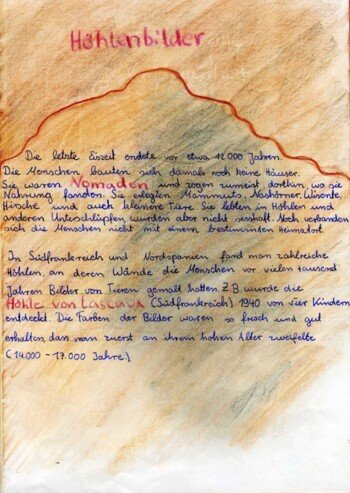 Höhlenbilder
Die letzte Eiszeit endete vor etwa 12.000 Jahren.
Die Menschen bauten sich damals noch keine Häuser.
Sie waren Nomaden und zogen zumeist dorthin, wo sie
Nahrung fanden. Sie erlegten Mammuts, Nashörner, Wisente,
Hirsche und auch kleinere Tiere. Sie lebten in Höhlen und
anderen Unterschlüpfen, wurden aber nicht sesshaft. Noch verbanden
sich die Menschen nicht mit einem bestimmten Heimatort.
In Südfrankreich und Nordspanien fand man zahlreiche
Höhlen, an deren Wände die Menschen vor vielen tausend
Jahren Bilder von Tieren gemalt hatten. Z.B. wurde die
Höhle von Lascaux (Südfrankreich) 1940 von vier Kindern
entdeckt. Die Farben der Bilder waren so frisch und gut
erhalten, dass man zuerst an ihrem hohen Alter zweifelte
(14.000 - 17.000 Jahre)